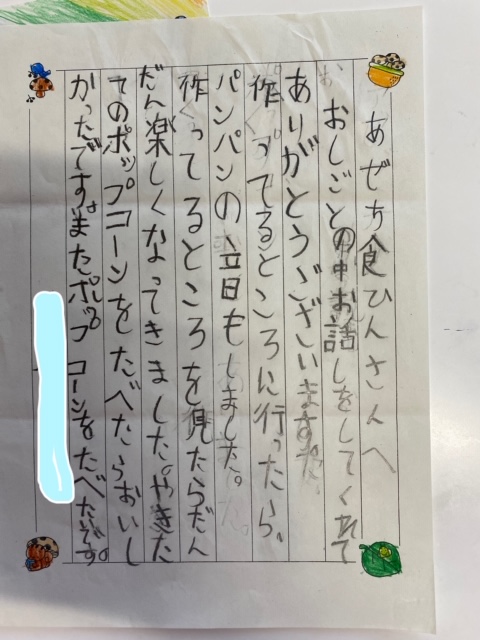 あぜち食ひんさんへ
おしごとの中お話しをしてくれて
ありがとうございました。
作ってるところに行ったら。
パンパンの音もしました。
作ってるところを見たらだん
だん楽しくなってきました。やきた
てのポップコーンをたべたらおいし
かったです。またポップコーンをたべたいです。